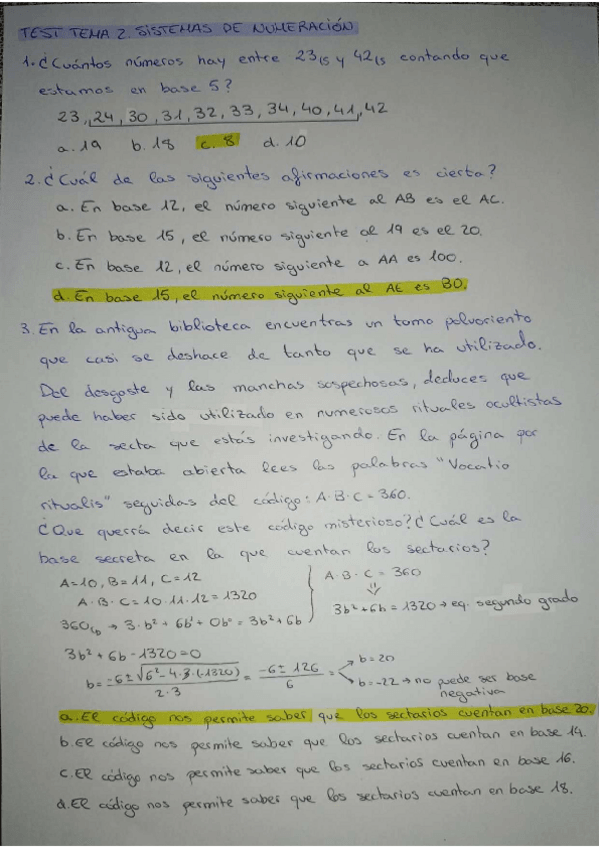 TEST TEMA 2. SISTEMAS DE NUMERACIÓN
1. ¿Cuántos números hay entre 23₍₅ y 42₍₅ contando que
estamos en base 5?
23, 24, 30, 31, 32, 33, 34, 40, 41, 42
a. 19 b. 18 c. 8 d. 10
2. ¿Cuál de las siguientes afirmaciones es cierta?
a. En base 12, el número siguiente al AB es el AC.
b. En base 15, el número siguiente al 19 es el 20.
c. En base 12, el número siguiente a AA es 100.
d. En base 15, el número siguiente al AE es B0.
3. En la antigua biblioteca encuentras un tomo polvoriento
que casi se deshace de tanto que se ha utilizado.
Del desgaste y las manchas sospechosas, deduces que
puede haber sido utilizado en numerosos rituales ocultistas
de la secta que estás investigando. En la página por
la que estaba abierta lees las palabras "Vocatio
ritualis" seguidas del código: A·B·C = 360.
¿Que querrá decir este código misterioso? ¿Cuál es la
base secreta en la que cuentan los sectarios?
A=10, B=11, C=12
A·B·C = 10·11·12 = 1320
360₍b → 3·b² + 6b¹ + 0b⁰ = 3b² + 6b
A·B·C = 360
⇓
3b² + 6b = 1320 → eq. segundo grado
3b² + 6b - 1320 = 0
b = -6 ± √6² - 4·3·(-1320) / 2·3 = -6 ± 126 / 6 =
b = 20
b = -22 → no puede ser base
negativa
a. El código nos permite saber que los sectarios cuentan en base 20.
b. El código nos permite saber que los sectarios cuentan en base 14.
c. El código nos permite saber que los sectarios cuentan en base 16.
d. El código nos permite saber que los sectarios cuentan en base 18.